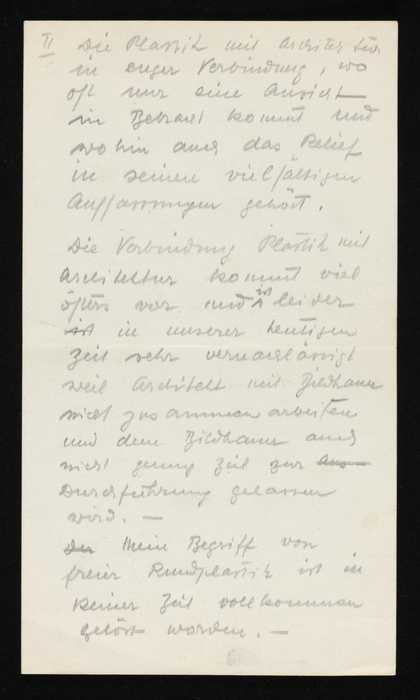 II Die Plastik mit Architektur
in enger Verbindung, wo
oft nur eine Ansicht
in Betracht kommt und
wohin auch das Relief
in seinen vielfältigen
Auffassungen gehört.
Die Verbindung Plastik mit
Architektur kommt viel
öfters vor und ist leider
ist in unserer heutigen
Zeit sehr vernachlässigt
weil Architekt mit Bildhauer
nicht zusammen arbeiten
und dem Bildhauer auch
nicht genug Zeit zur Aus-
Durchführung gelassen
wird. —
Der Mein Begriff von
freier Rundplastik ist in
keiner Zeit vollkommen
gelöst worden. —